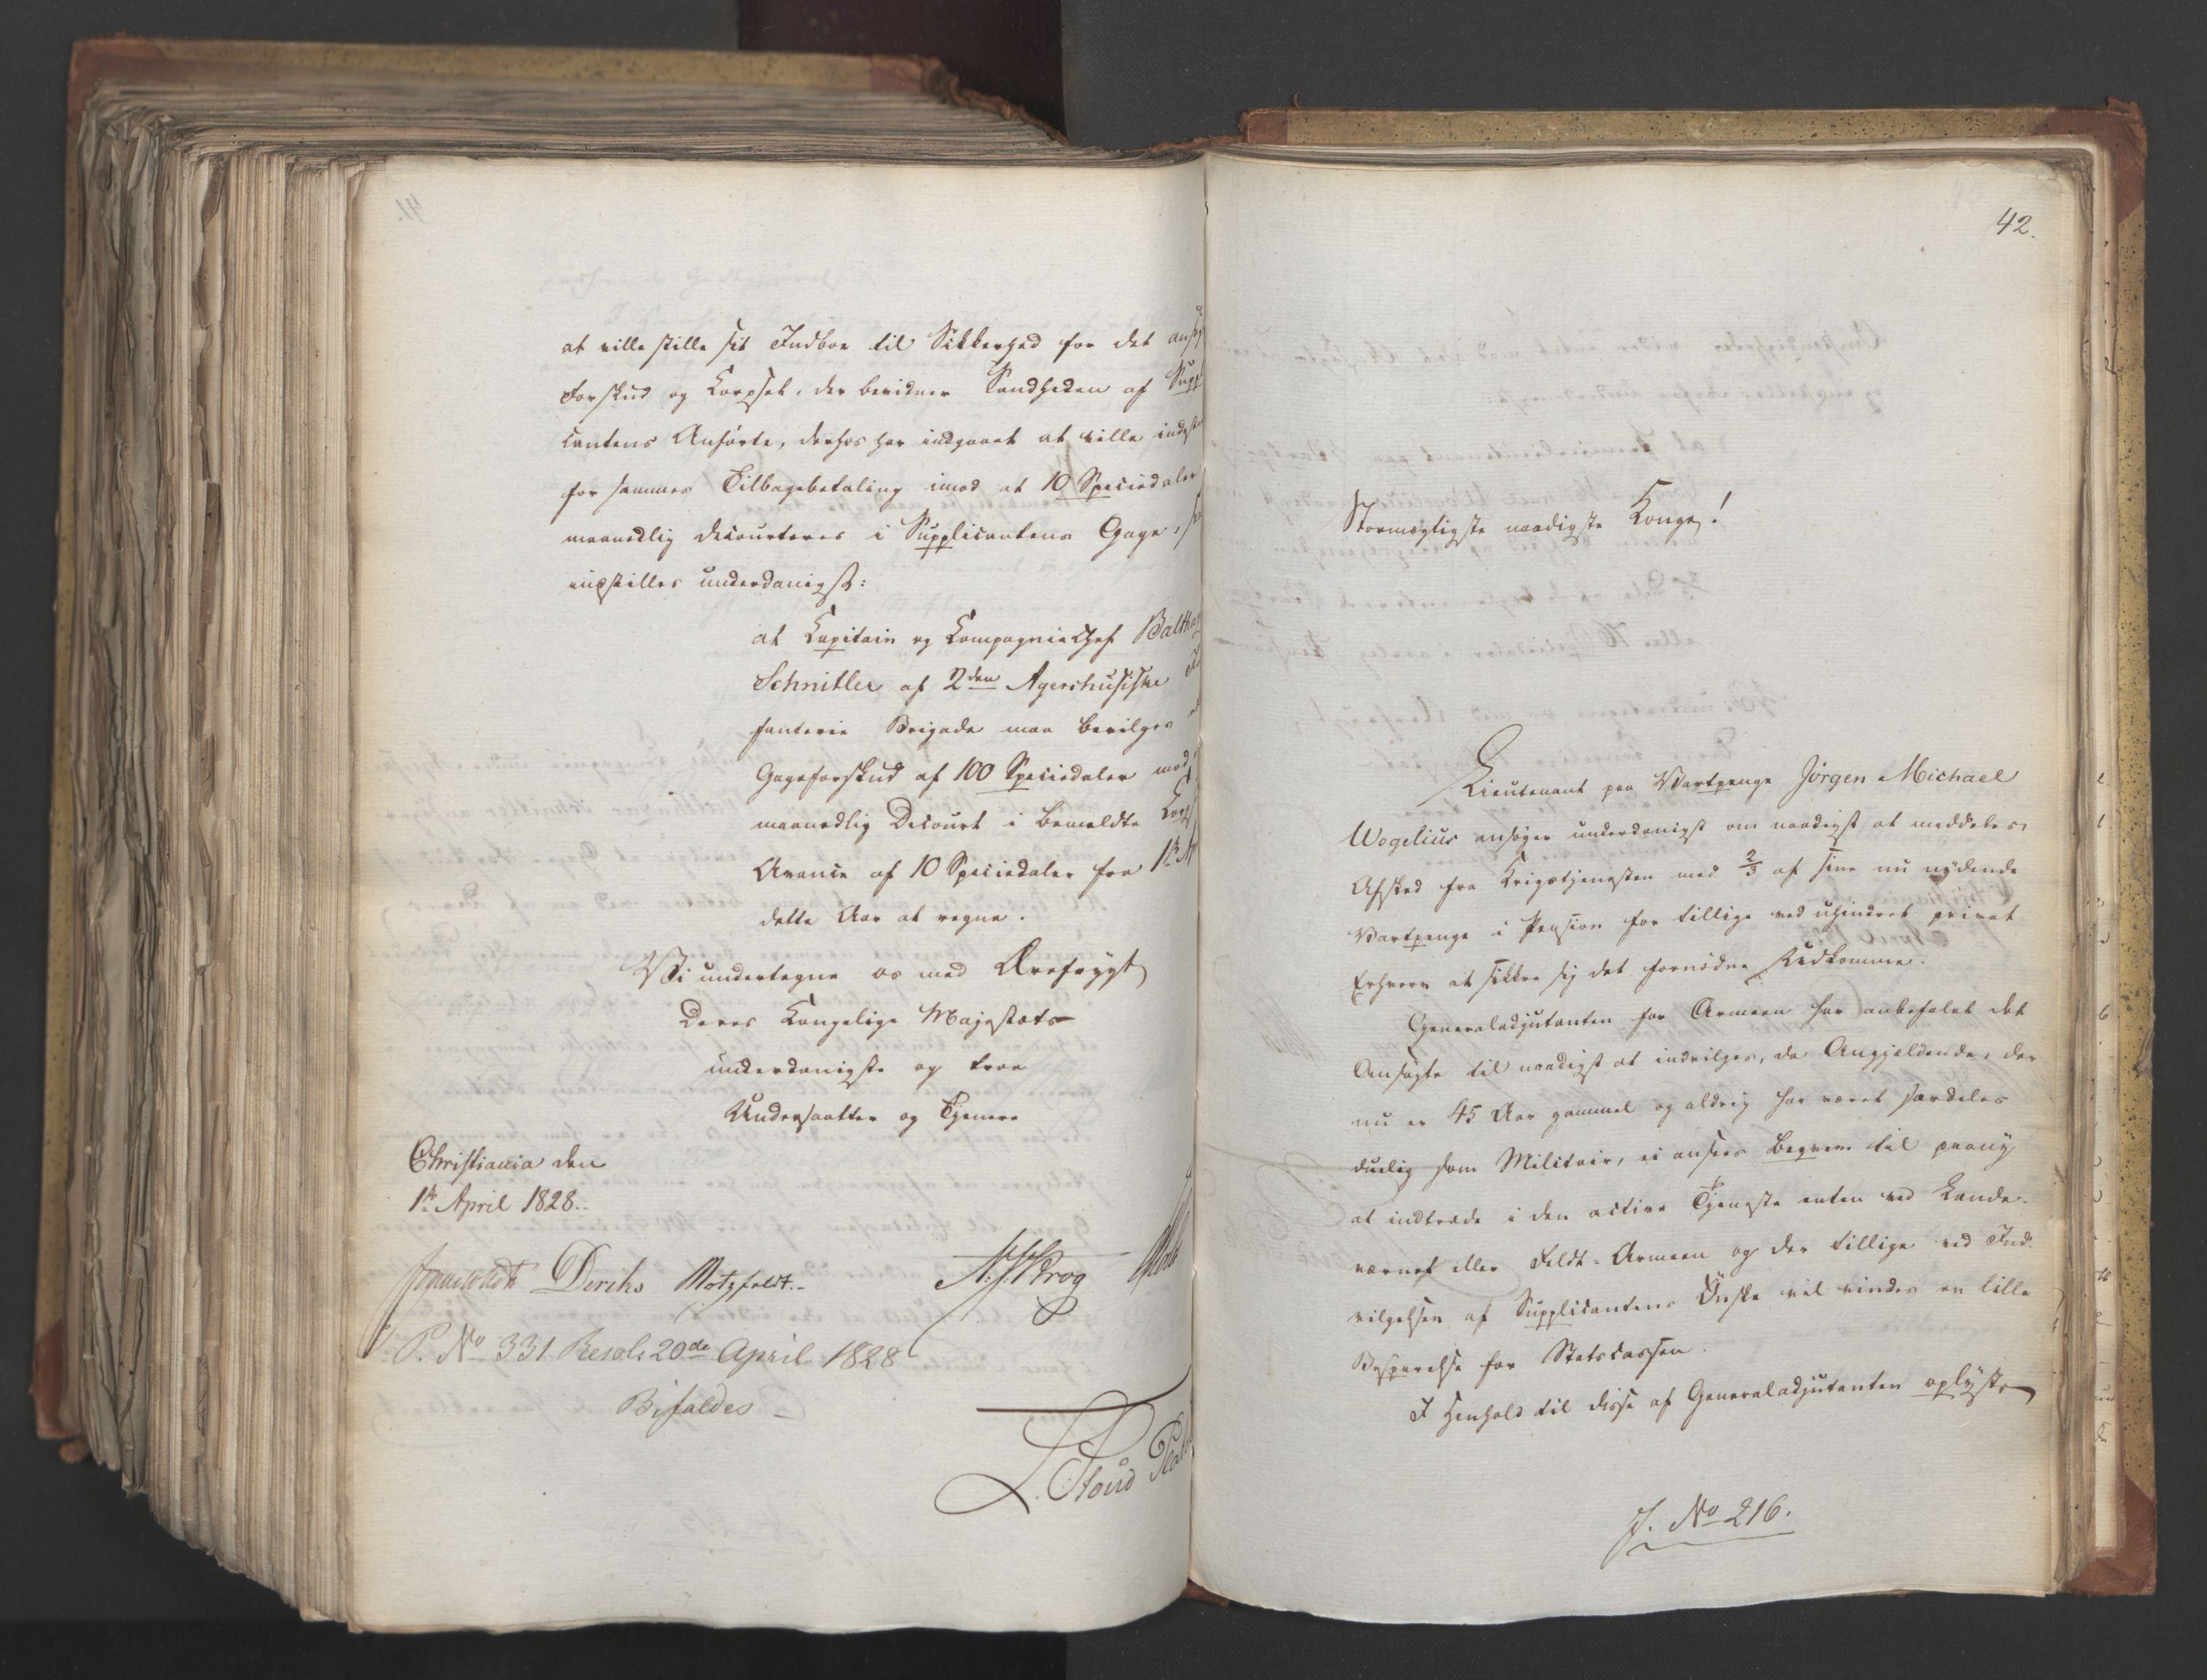 at ville stille sit Indboe til Sikkerhed for det
Forskud og Corpset, der bevidner Sandheden af Suppli
cantens Anførte, derhos har indgaaet at ville indestaae
for sammes Tilbagebetaling imod at 10 Speciedaler
maanedlig decourteres i Supplicantens Gage,
indstilles underdanigst:
at Capitain og Compagniechef Balthaz
Schnitler af 2den Agershusiske
fanterie Brigade maa bevilges
Gageforskud af 100 Speciedaler mod
maanedlig Decourt i bemeldte
Avance af 10 Speciedaler fra 1ste
dette Aar at regne.
Vi undertegne os med Ærefrygt
Deres Kongelige Majestæts
underdanigste og troe
Undersaatter og Tjenere
Christiania den
1ste April 1828.
Diriks Motzfeldt.
P. No 331 Resol: 20de April 1828
Bifaldes
42.
Stormægtigste naadigste Konge!
Lieutenant paa Vartpenge Jörgen Michael
Wogelius ansøger underdanigst om naadigst at meddeles
Afsked fra Krigstjenesten med 2/3 af sine nu nydende
Vartpenge i Pension for tillige ved uhindret privat
Erhverv at sikkre sig det fornødne Udkomme.
Generaladjutanten for Armeen har anbefalet det
Ansøgte til naadigst at indvilges, da Angjældende, der
nu er 45 Aar gammel og aldrig har været særdeles
duelig som Militair, ei ansees beqvem til paany
at indtræde i den active Tjeneste enten ved Lande-
værnet eller Feldt-Armeen og der tillige ved Ind-
vilgelsen af Supplicantens Ønske vil vindes en lille
Besparelse for Statscassen.
I Henhold til disse af Generaladjutanten oplyste
J. No 216.